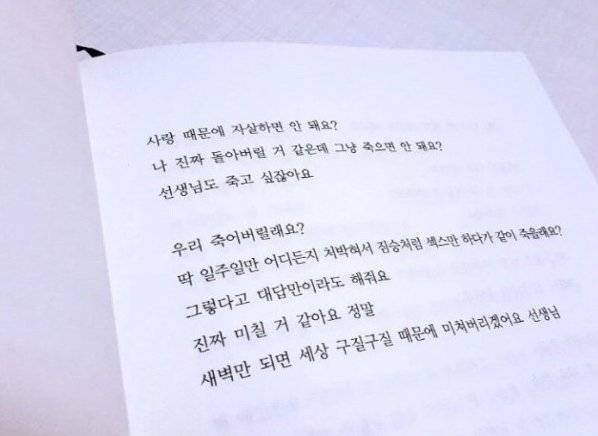 사랑 때문에 자살하면 안 돼요?
나 진짜 돌아버릴 거 같은데 그냥 죽으면 안 돼요?
선생님도 죽고 싶잖아요
우리 죽어버릴래요?
딱 일주일만 어디든지 처박혀서 짐승처럼 섹스만 하다가 같이 죽을래요?
그렇다고 대답만이라도 해줘요
진짜 미칠 거 같아요 정말
새벽만 되면 세상 구질구질 때문에 미쳐버리겠어요 선생님